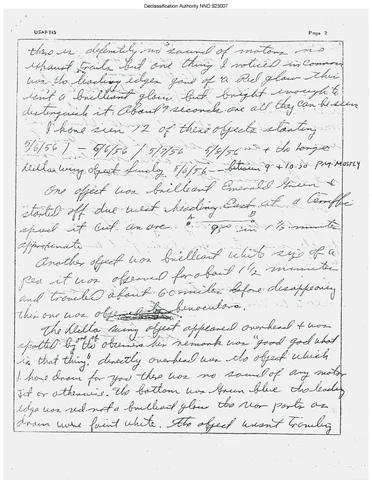 Declassification Authority NND 923007
USAF 112 Page 2
there is definitely no sound of motors no
exhaust trails but one thing I noticed in common
was the leading edges gave of a Red glow this
isn't a brilliant glow but bright enough to
distinguish it about 7 seconds are all they can be seen
I have seen 12 of these objects starting
object between 9 + 10:30 P.M. MOSTLY
One object was brilliant Emerald Green +
started off due west heading East at a terrific
speed it cut an arc A B in 1½ minutes
approximate
Another object was brilliant white size of a
pea it was observed for about 1½ minutes
and traveled about 60 miles before disappearing
this one was binoculars.
The Delta wing object appeared overhead + was
spotted by the observer his remark was "good god what
is that thing". directly overhead was the object which
I have drawn for you there was no sound of any motor
jet or otherwise. The bottom was Green blue the leading
edge was red not a brilliant glow the rear parts as
drawn were faint white. The object wasn't traveling